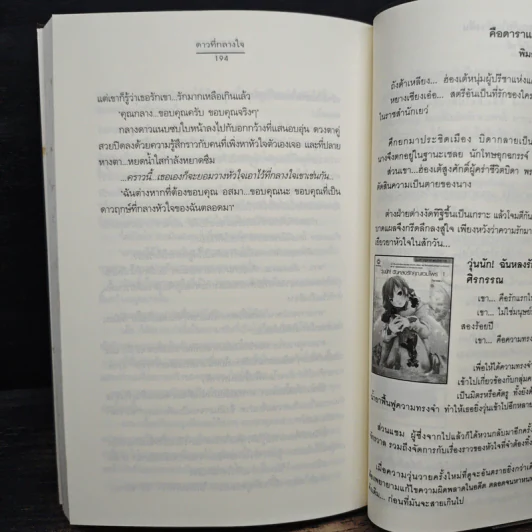 ดาวที่กลางใจ
194
แต่เขาก็รู้ว่าเธอรักเขา...รักมากเหลือเกินแล้ว
'คุณกลาง...ขอบคุณครับ ขอบคุณจริงๆ'
กลางดาวแนบซบใบหน้าลงไปกับอกกว้างที่แสนอบอุ่น ดวงตาคู่
สวยปิดลงด้วยความรู้สึกราวกับคนที่เพิ่งหาหัวใจตัวเองเจอ และที่ปลาย
หางตา...หยดน้ำใสกำลังหยาดซึม
...คราวนี้..เธอเองก็จะยอมวางหัวใจเอาไว้ที่กลางใจเขาเช่นกัน
'ฉันต่างหากที่ต้องขอบคุณ อสมา...ขอบคุณนะ ขอบคุณที่เป็น
ดาวฤกษ์ที่กลางหัวใจของฉันตลอดมา'
คือดาราแ
พิม
ถังต้าเหลียง... ฮ่องเต้หนุ่มผู้ปรีชาแห่งแ
หยางเซียงเอ๋อ... สตรีอันเป็นที่รักของใคร
ในราชสำนักเยว่
ศึกยกมาประชิดเมือง บิดากลายเป็น
นางจึงตกอยู่ในฐานะเชลย นักโทษอุกฉกรรจ์
ส่วนเขา...ฮ่องเต้สูงศักดิ์ผู้คร่าชีวิตบิดา พร
ตัดสินความเป็นตายของนาง
ต่างฝ่ายต่างงัดทิฐิขึ้นเป็นเกราะ แล้วโจมตีกัน
บาดแผลจึงกรีดลึกลงสู่ใจ เพียงหวังว่าความรักมา
เยียวยาหัวใจในสักวัน...
วุ่นนัก! ฉันหลงรั
ศิรกรรณ
เขา... คือรักแรกใ
เขา... ไม่ใช่มนุษย์
สองร้อยปี
เขา... คือความทรง
เพื่อให้ได้ความทรงจำ
เข้าไปเกี่ยวข้องกับกลุ่มค
เป็นมิตรหรือศัตรู ทั้งยังต้
เข้ามาฟื้นฟูความทรงจำ ทำให้เธอยิ่งวุ่นเข้าไปอีกหลาย
ส่วนแซม ผู้ซึ่งจากไปแล้วก็ได้หวนกลับมาอีกครั้ง
รวมถึงจัดการกับเรื่องราวของหัวใจที่จำต้อง
เมื่อความวุ่นวายครั้งใหม่ที่ดูจะอันตรายยิ่งกว่าเดิ
พยายามแก้ไขความผิดพลาดในอดีต ตลอดจนหาหน
เดิม... ก่อนที่มันจะสายเกินไป